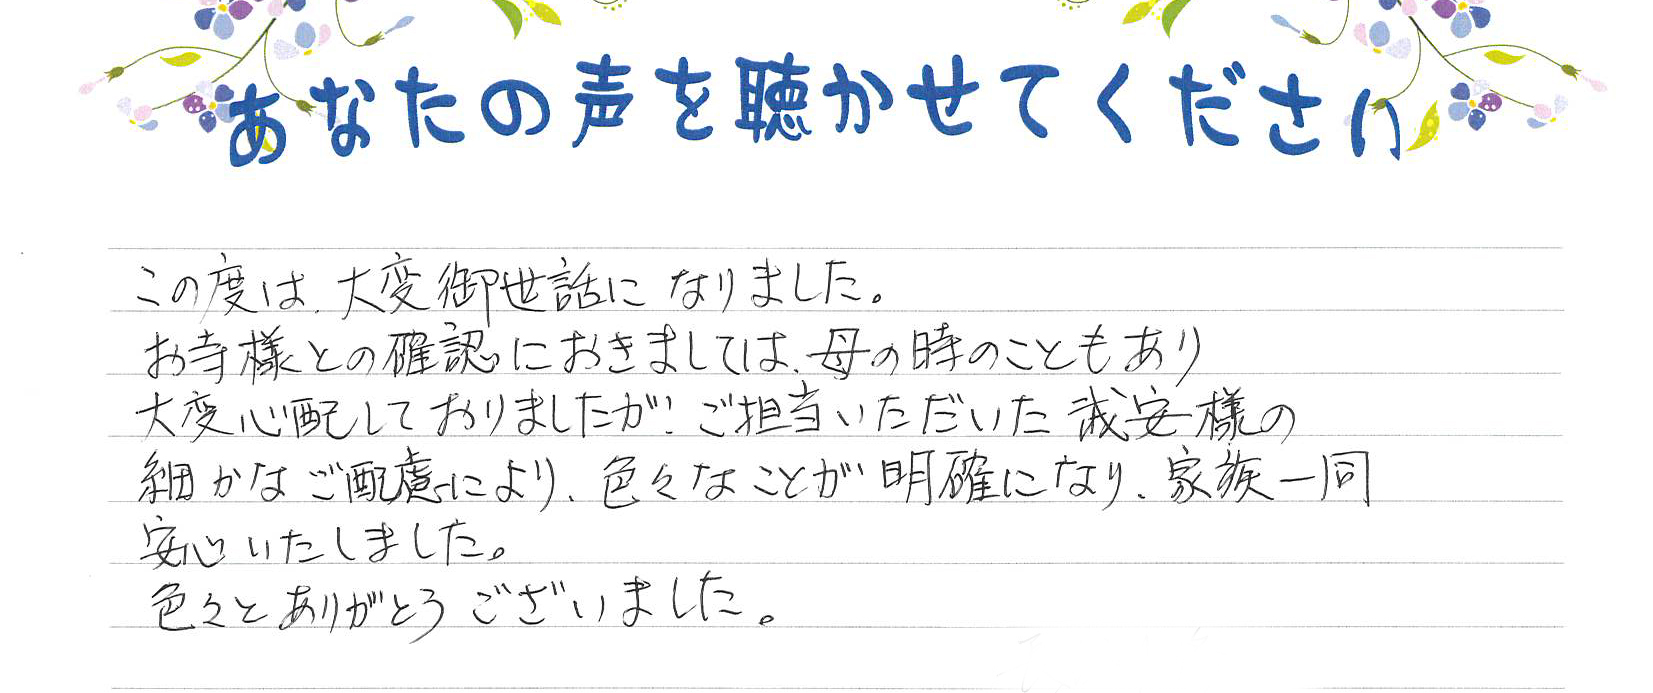 あなたの声を聴かせてください
この度は、大変御世話になりました。
お寺様との確認におきましては、母の時のこともあり
大変心配しておりましたが、ご担当いただいた 安様の
細かなご配慮により、色々なことが明確になり、家族一同
安心いたしました。
色々とありがとうございました。